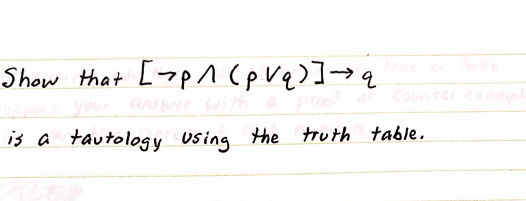 Show that [¬p ∧ (p ∨ q)] → q
is a tautology using the truth table.